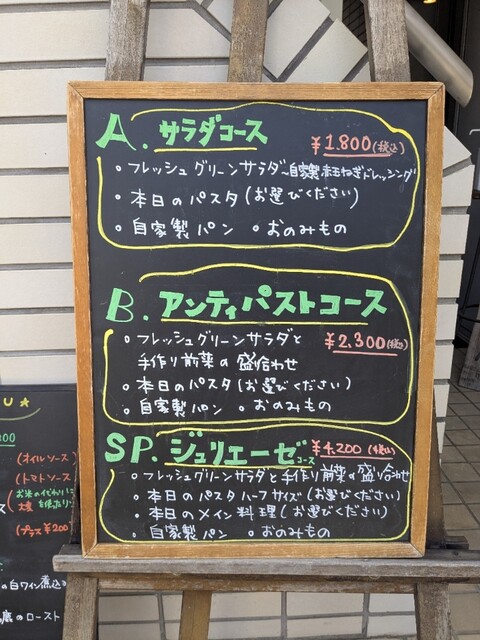 A. サラダコース ¥1.800(税込)
・フレッシュグリーンサラダ〜自家製赤玉ねぎドレッシング
・本日のパスタ(お選びください)
・自家製パン ・おのみもの
B. アンティパストコース
・フレッシュグリーンサラダと ¥2.300(税込)
手作り前菜の盛合わせ
・本日のパスタ(お選びください)
・自家製パン ・おのみもの
SP. ジュリエーゼコース ¥4.200(税込)
・フレッシュグリーンサラダと手作り前菜の盛り合わせ
・本日のパスタハーフサイズ(お選びください)
・本日のメイン料理(お選びください)
・自家製パン ・おのみもの
U★
(オイルソース)
(トマトソース
(プラス¥200
の白ワイン煮込み
のロースト